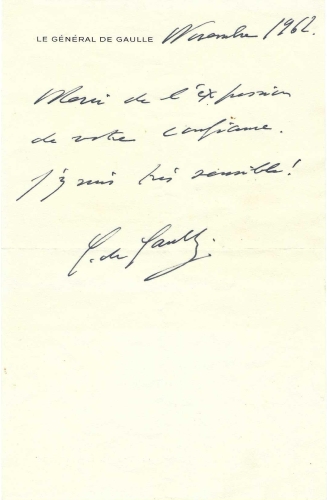 LE GÉNÉRAL DE GAULLE Novembre 1962.
Merci de l'expression
de votre confiance.
J'y suis très sensible !
C. de Gaulle.